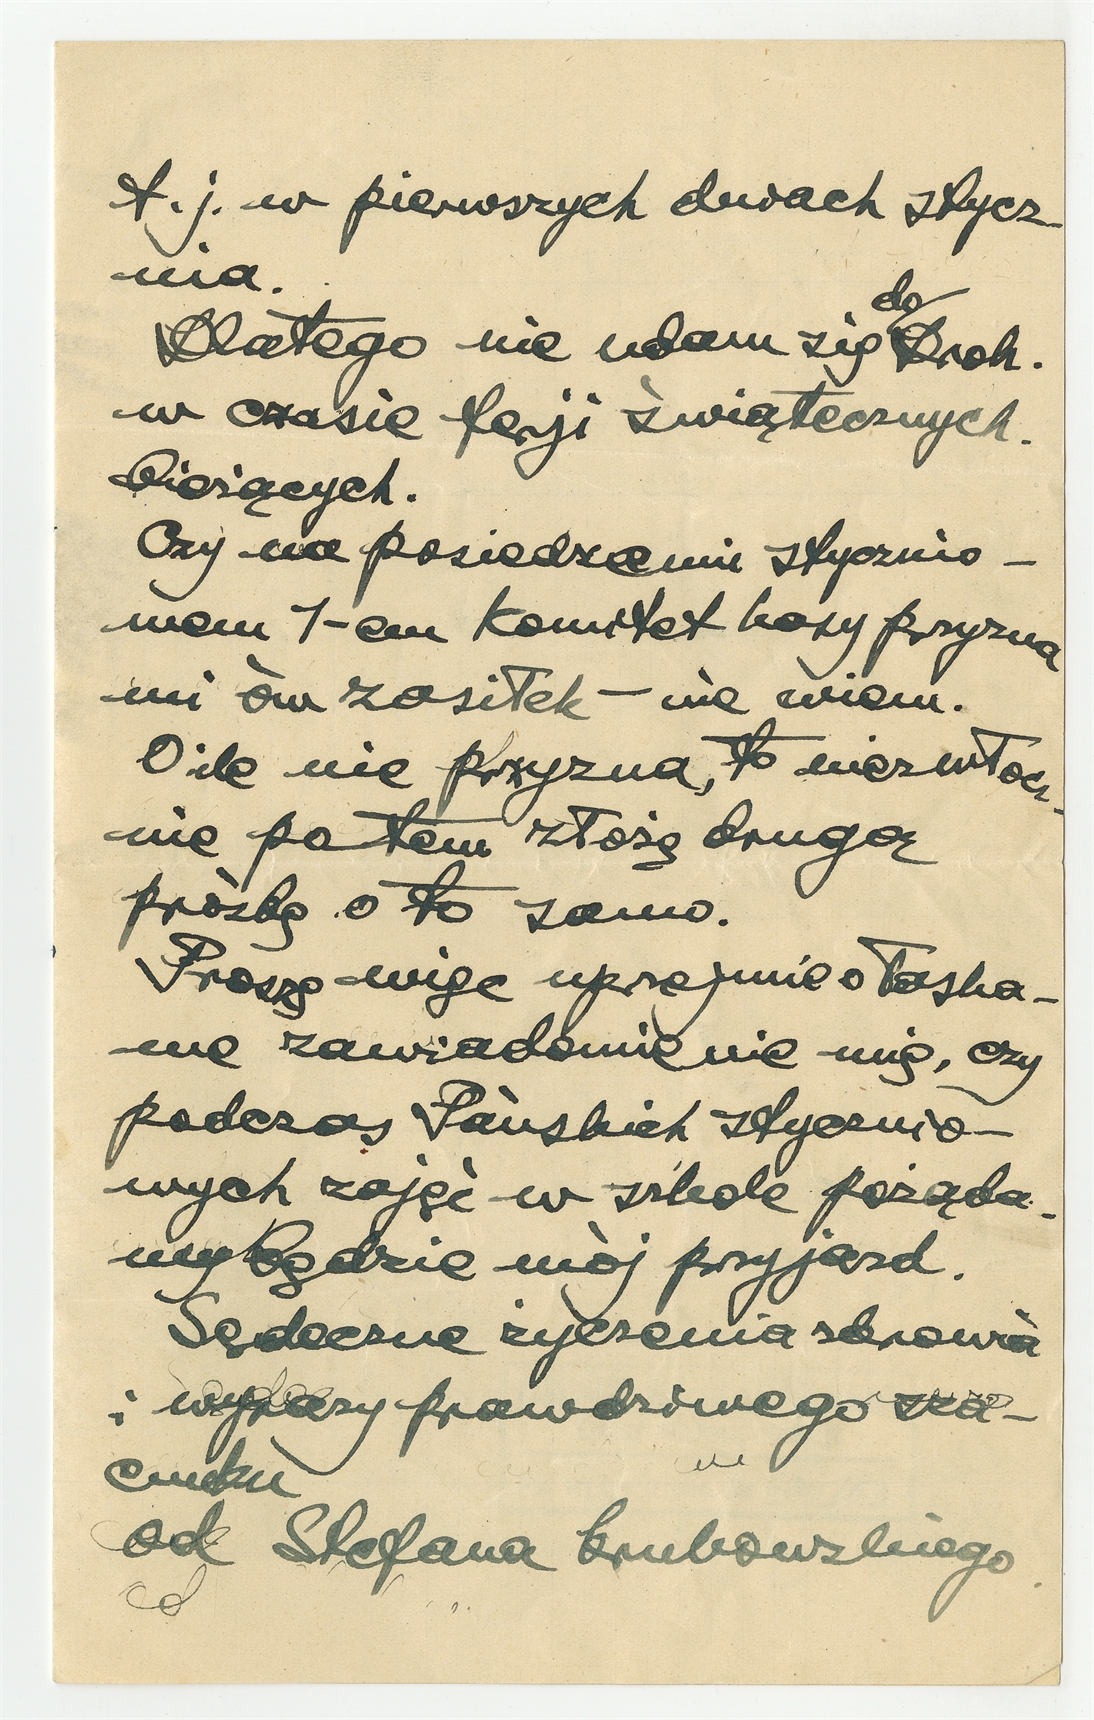 t. j. w pierwszych dniach stycz-
nia.
Dlatego nie udam się do Kroh.
w czasie feryj świątecznych
bieżących.
Czy na posiedzeniu stycznio-
wem 1-em Komitet kasy przyzna
mi ów zasiłek – nie wiem.
O ile nie przyzna, to niezwłocz-
nie po tem złożę drugą
prośbę o to samo.
Proszę więc uprzejmie o łaska-
we zawiadomienie mię, czy
podczas Pańskich stycznio-
wych zajęć w szkole pożąda-
ny będzie mój przyjazd.
Serdeczne życzenia zdrowia
i wyrazy prawdziwego sza-
cunku
od Stefana